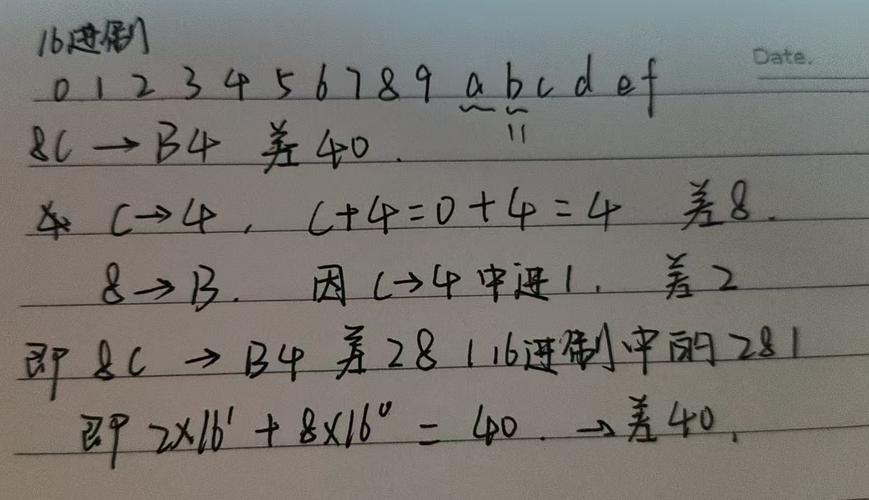 16进制
Date.
0 1 2 3 4 5 6 7 8 9 a b c d e f
11
8C → B4 差 40.
C→4, C+4=0+4=4 差8.
8→B. 因 C→4 中进1. 差2
即 8C → B4 差 28 (16进制中的28)
即 2×16¹ + 8×16⁰ = 40. → 差40.